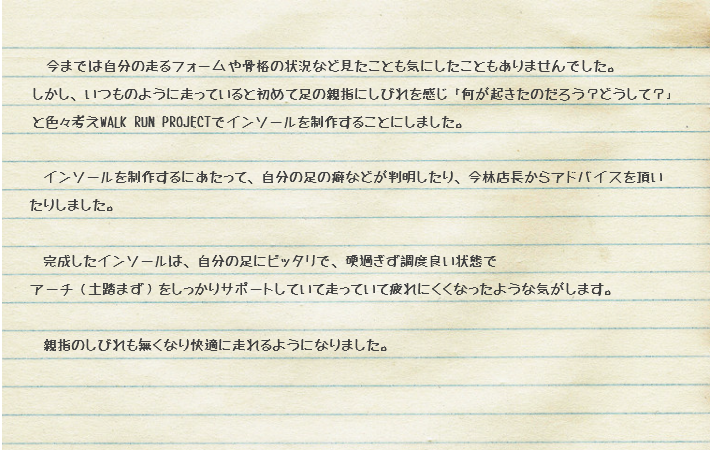 今までは自分の走るフォームや骨格の状況など見たことも気にしたこともありませんでした。
しかし、いつものように走っていると初めて足の親指にしびれを感じ「何が起きたのだろう？どうして？」
と色々考えWALK RUN PROJECTでインソールを制作することにしました。
インソールを制作するにあたって、自分の足の癖などが判明したり、今林店長からアドバイスを頂い
たりしました。
完成したインソールは、自分の足にピッタリで、硬過ぎず調度良い状態で
アーチ（土踏まず）をしっかりサポートしていて走っていて疲れにくくなったような気がします。
親指のしびれも無くなり快適に走れるようになりました。